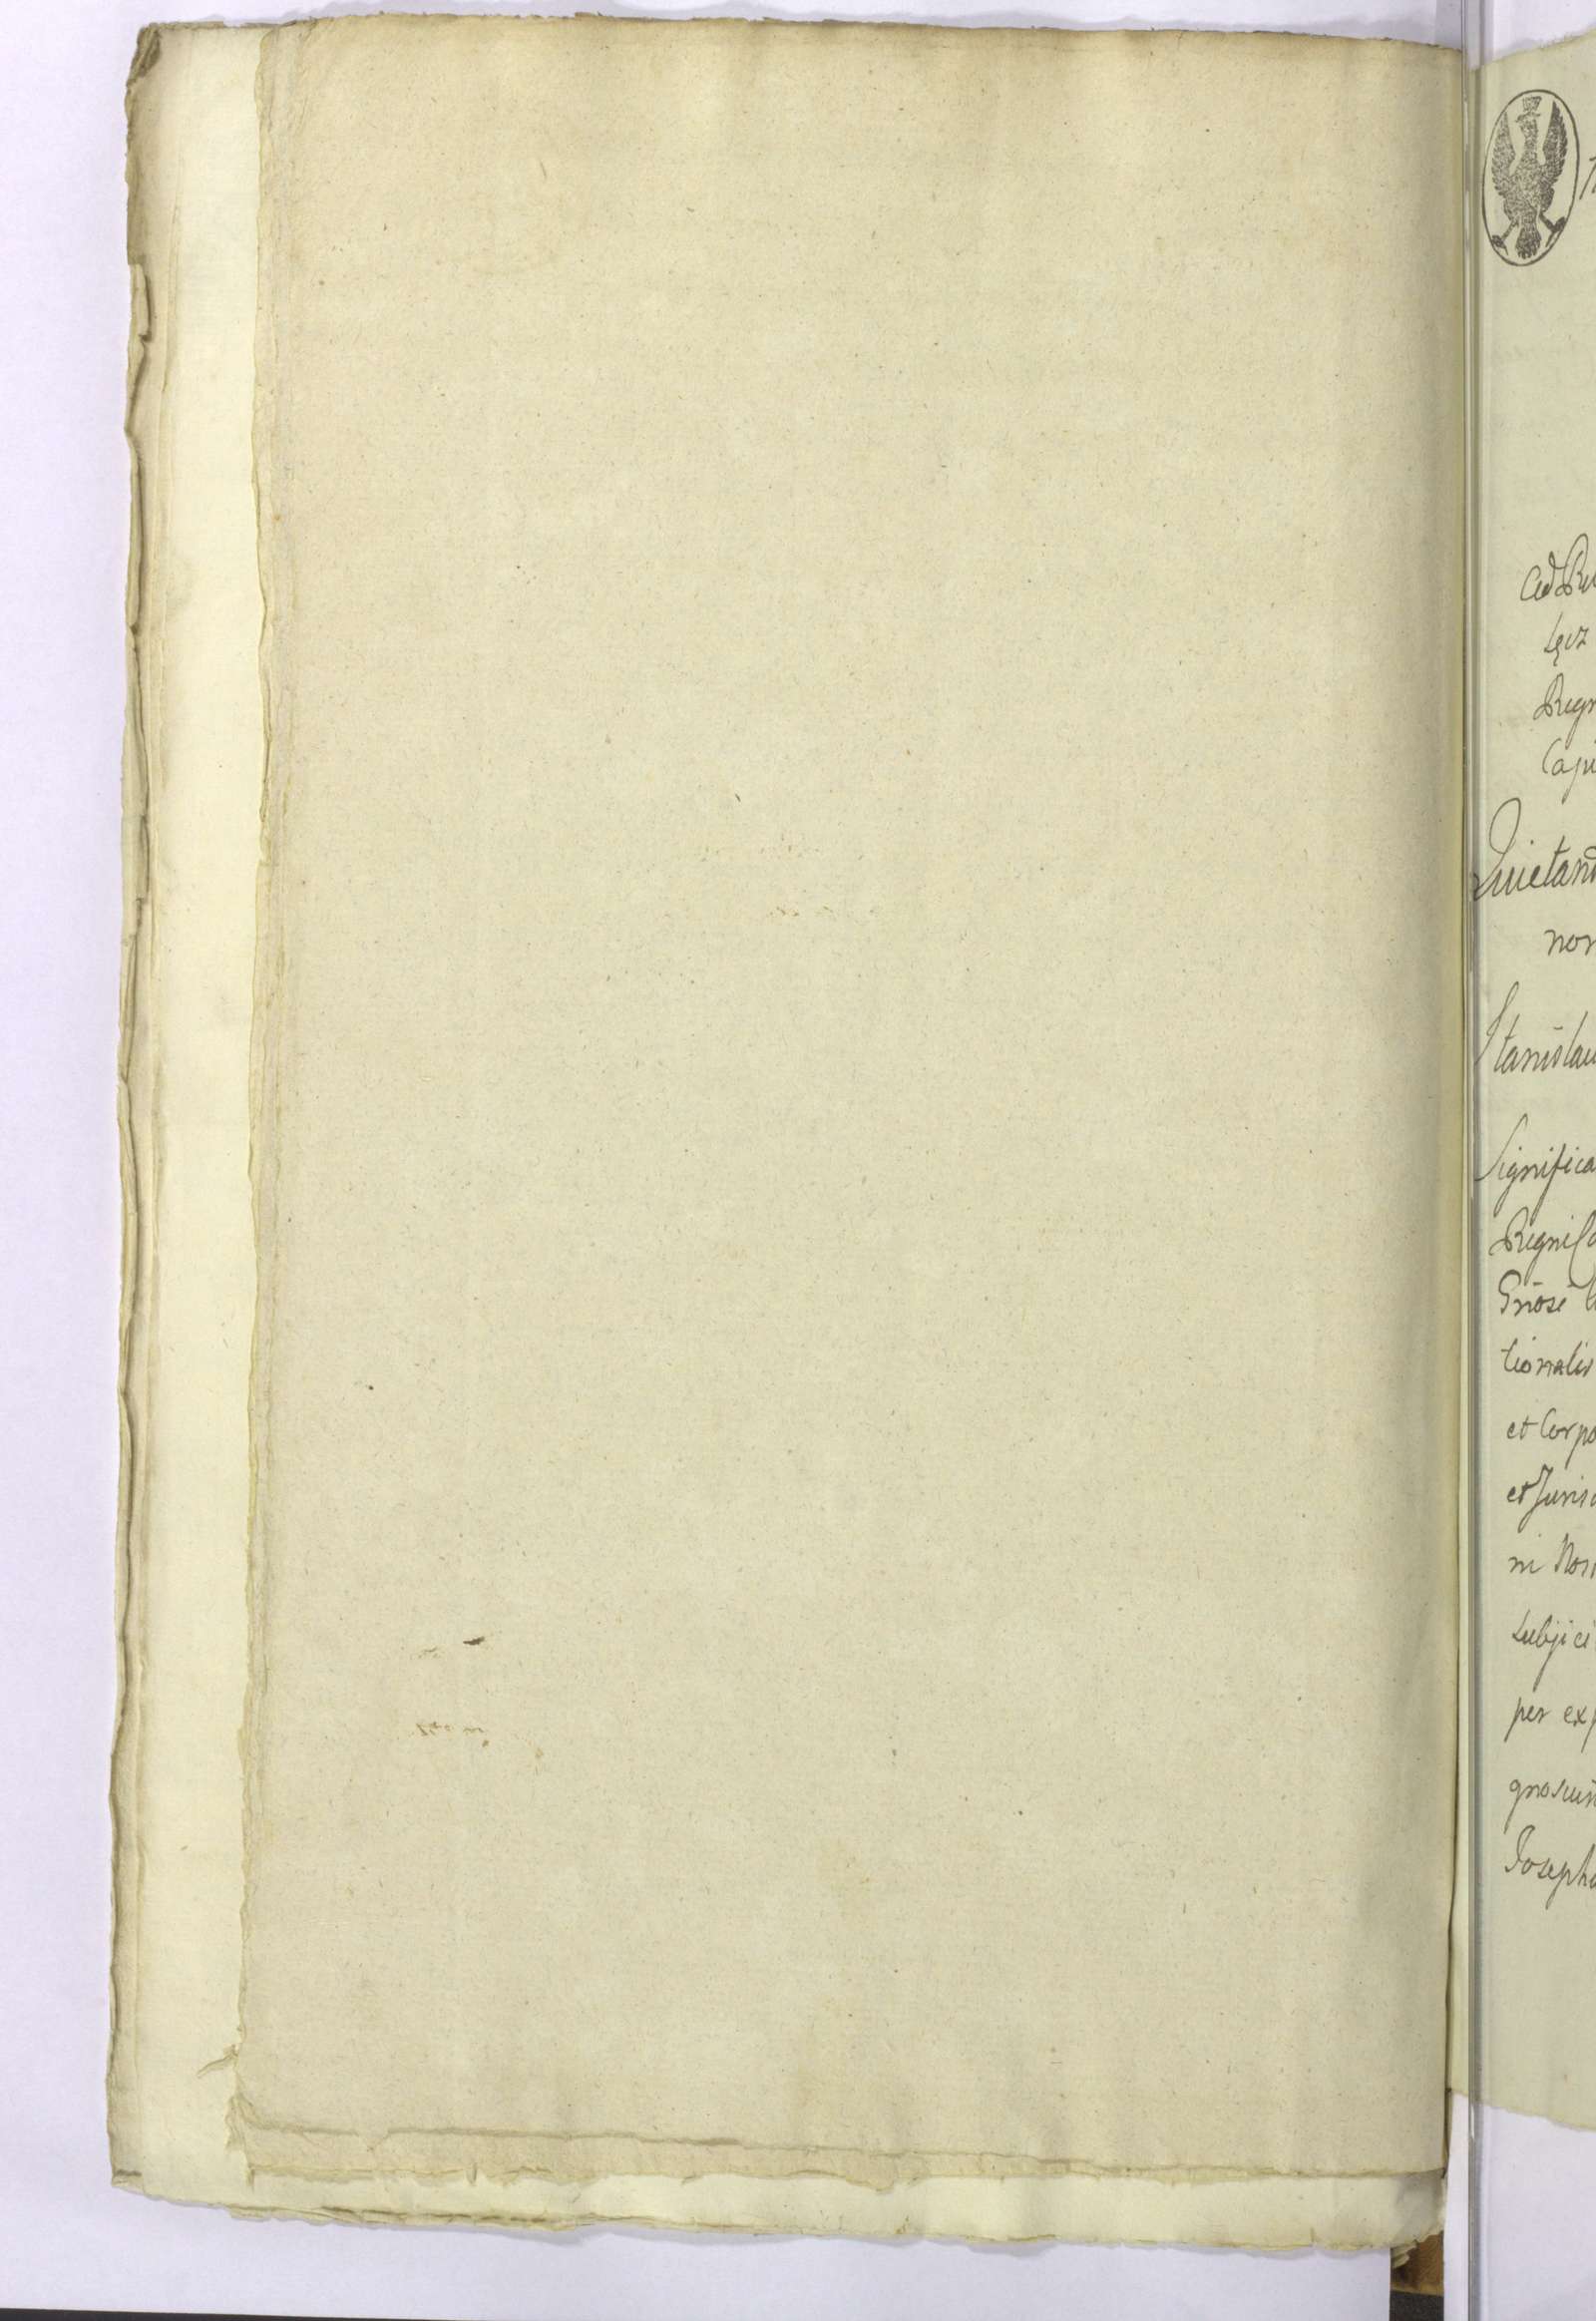 Ad Re
Łęcz
Regn
Capi
Quietand
non
Stanislau
Significa
Regni Ca
Gnose
tionalis
et Corpo
et Juris
ni Nos
subjici
per exp
gnoscun
Josepho